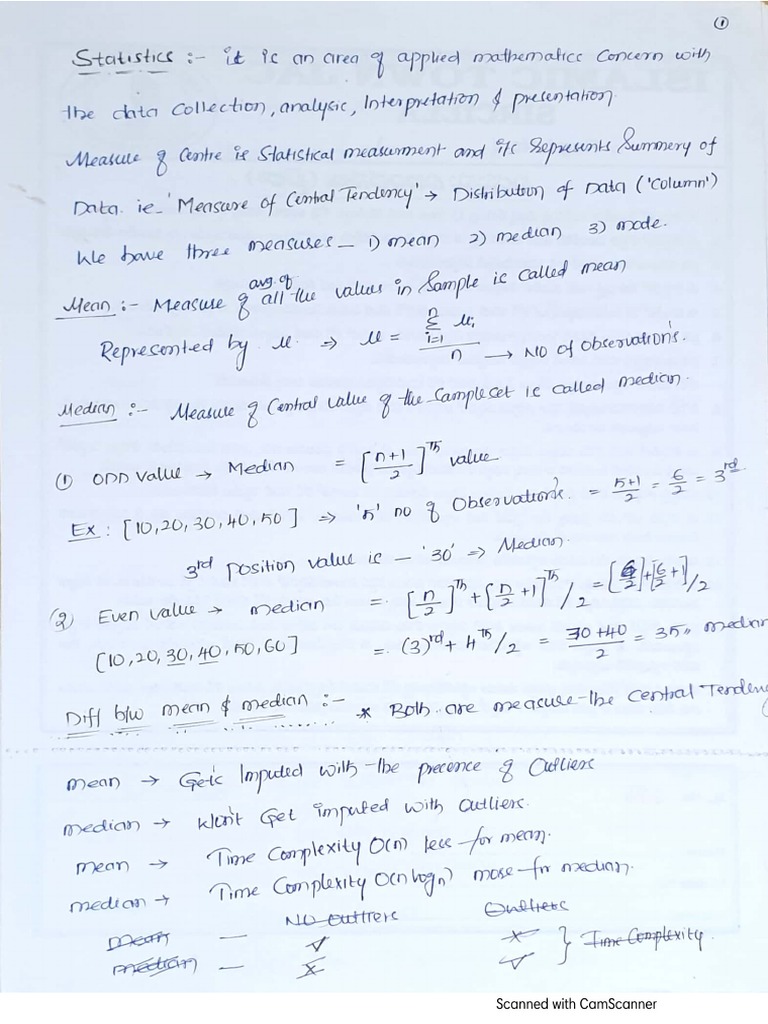 ①
Statistics :- it is an area of applied mathematics concern with
the data collection, analysis, Interpretation & presentation
Measure of Centre is Statistical measurment and it's Represents Summery of
Data. ie- 'Measure of Central Tendency' → Distribution of Data ('column')
We have three measures — 1) mean 2) median 3) mode.
avg. of
Mean :- Measure of all the values in Sample is called mean
Represented by μ. ⇒ μ = n Σ i=1 μi / n → NO of observation's.
Median :- Measure of Central value of the sample set is called median.
① ODD value → Median = [n+1/2]^Th value
Ex : [10,20,30,40,50] ⇒ '5' no of Observation's. = 5+1/2 = 6/2 = 3rd
3rd position value is — '30' ⇒ Median.
② Even value → median = [n/2]^Th + [n/2 +1]^Th /2 = [6/2]+[6/2+1]/2
[10,20,30,40,50,60] = (3)rd + 4Th/2 = 30+40/2 = 35,, median
Diff b/w mean & median :- * Both are measure the central Tendenc
mean → Get's Imputed with the precence of Outliers
median → Won't Get imputed with outliers.
mean → Time Complexity O(n) less for mean.
median → Time Complexity O(n logn) more for median.
NO outliers Outliers
mean — ✓ ×
median — × ✓ } Time Complexity.
Scanned with CamScanner